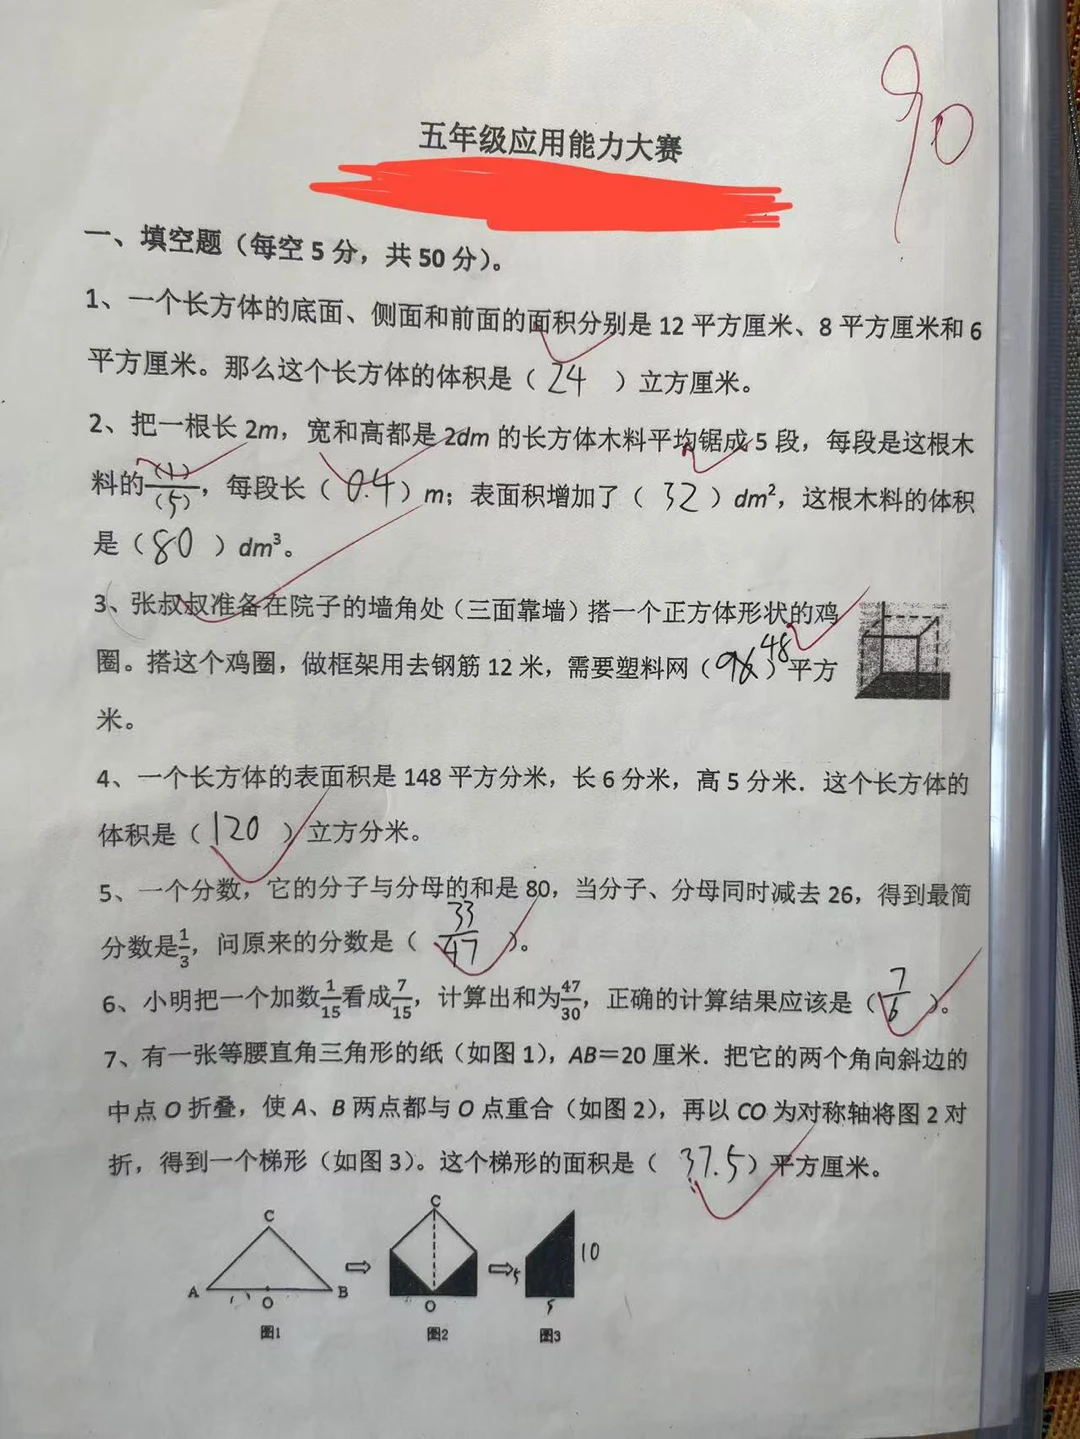 90
五年级应用能力大赛
一、填空题（每空5分，共50分）。
1、一个长方体的底面、侧面和前面的面积分别是12平方厘米、8平方厘米和6
平方厘米。那么这个长方体的体积是（ 24 ）立方厘米。
2、把一根长2m，宽和高都是2dm的长方体木料平均锯成5段，每段是这根木
料的(1)/(5)，每段长（ 0.4 ）m；表面积增加了（ 32 ）dm²，这根木料的体积
是（ 80 ）dm³。
3、张叔叔准备在院子的墙角处（三面靠墙）搭一个正方体形状的鸡
圈。搭这个鸡圈，做框架用去钢筋12米，需要塑料网（ 96 48 ）平方
米。
4、一个长方体的表面积是148平方分米，长6分米，高5分米．这个长方体的
体积是（ 120 ）立方分米。
5、一个分数，它的分子与分母的和是80，当分子、分母同时减去26，得到最简
分数是1/3，问原来的分数是（ 33/47 ）。
6、小明把一个加数1/15看成7/15，计算出和为47/30，正确的计算结果应该是（ 7/6 ）。
7、有一张等腰直角三角形的纸（如图1），AB＝20厘米．把它的两个角向斜边的
中点O折叠，使A、B两点都与O点重合（如图2），再以CO为对称轴将图2对
折，得到一个梯形（如图3）。这个梯形的面积是（ 37.5 ）平方厘米。
C
A
O
B
图1
C
O
图2
5
10
5
图3